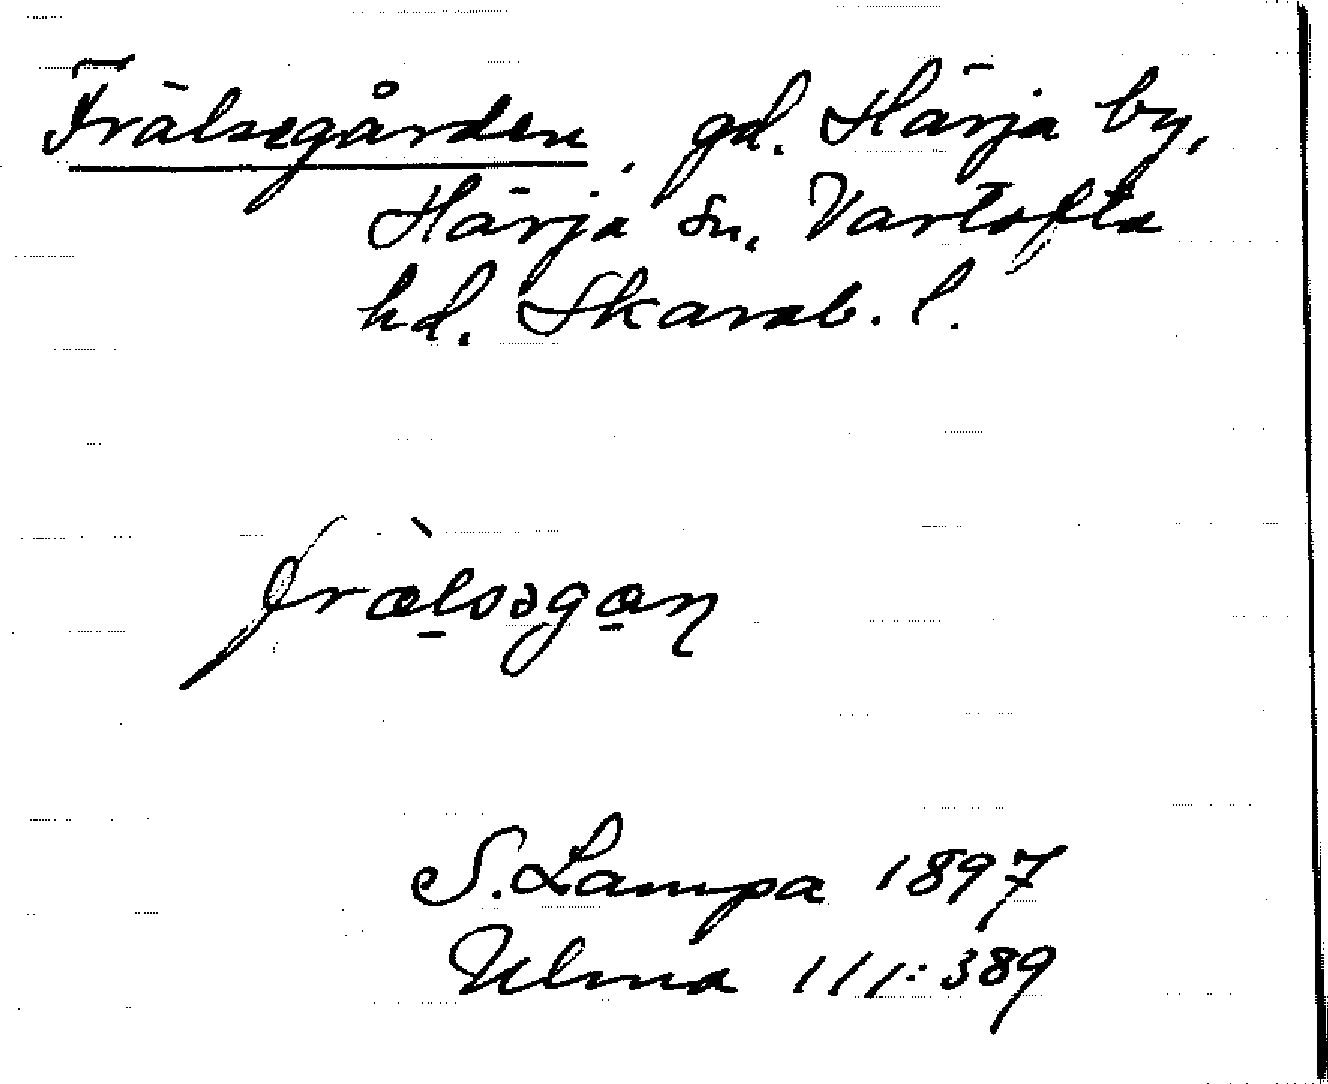 Frälsegården, gd. Härja by,
Härja sn. Vartofta
hd. Skarab. l.
fræ̀lsəgan
S. Lampa 1897
Ulma 111:389